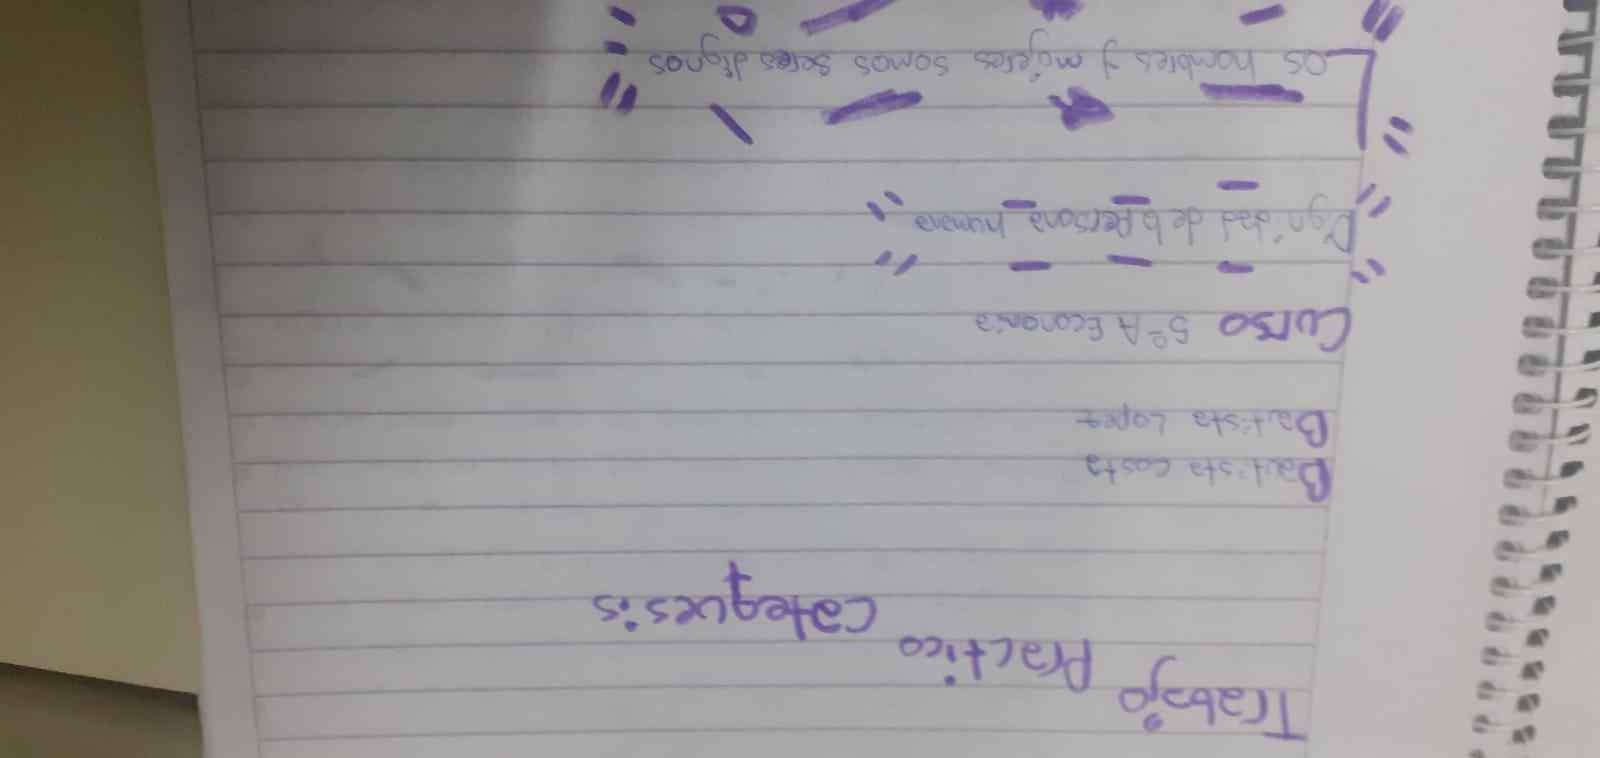 Trabajo
Practico
Catequesis
Bautista Costa
Bautista Lopez
Curso 5º A Economia
Dignidad de la Persona humana
Los hombres y mujeres somos seres dignos